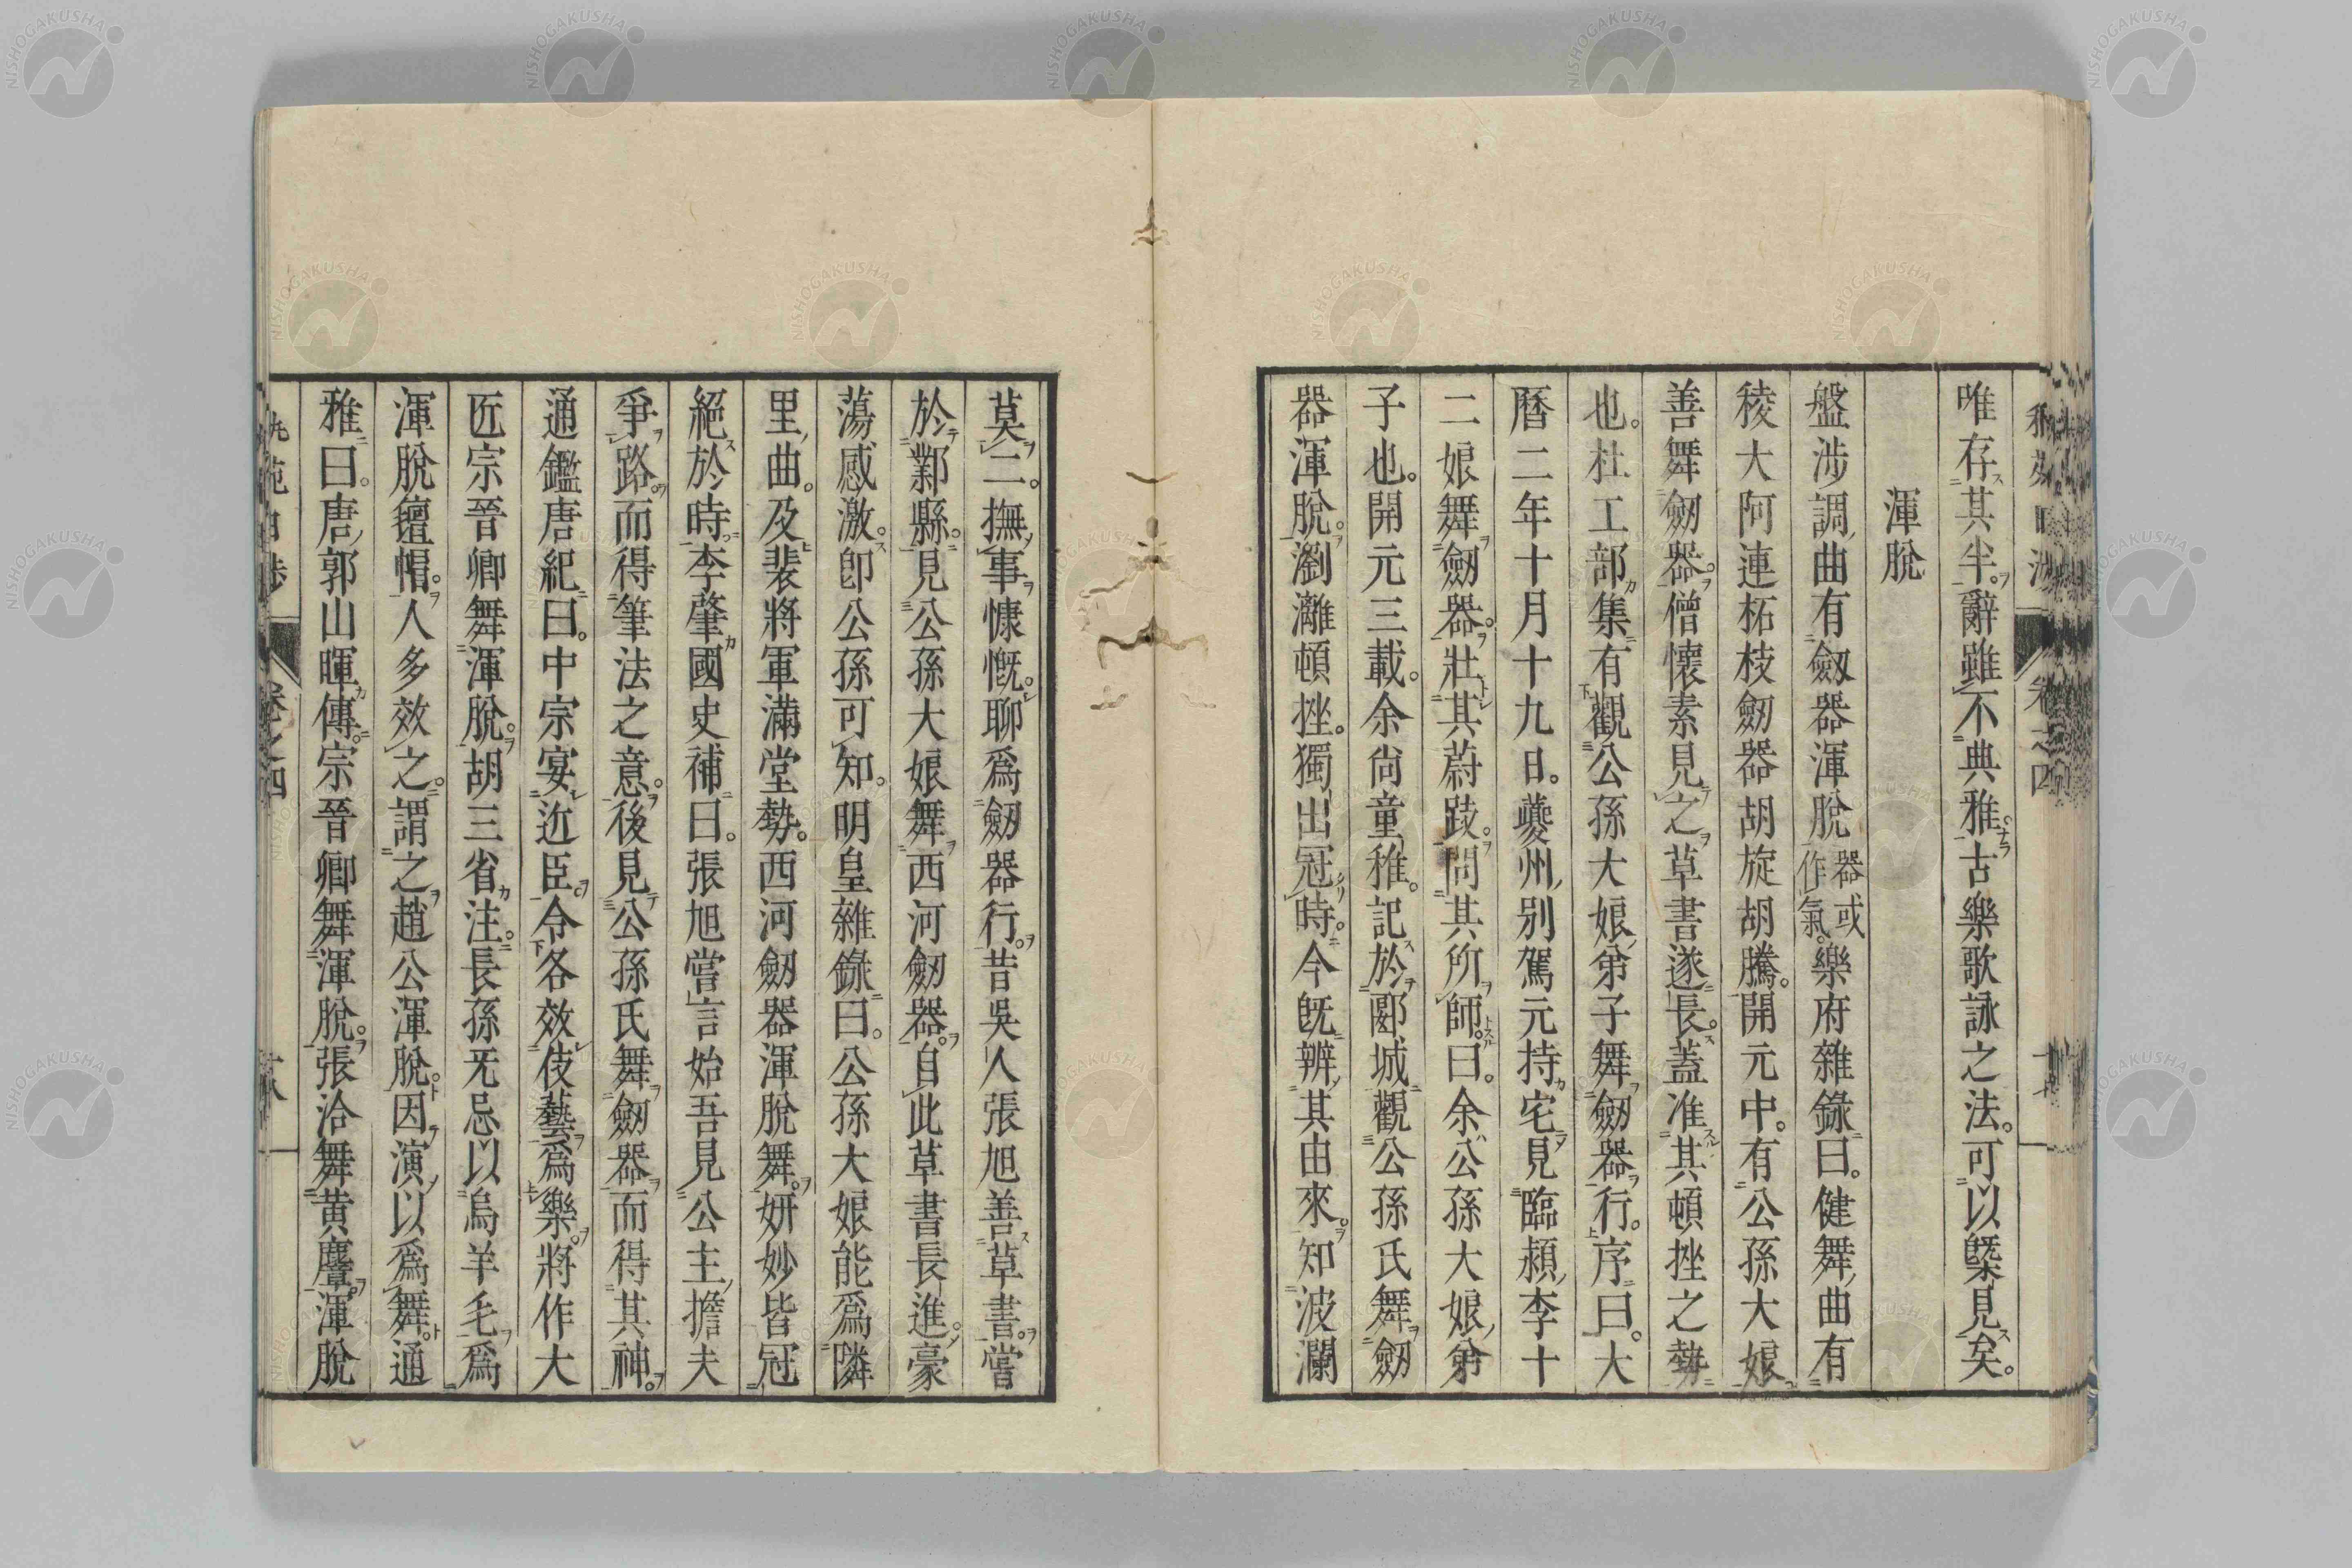 唯存其半。辭雖不典雅。古樂歌詠之法。可以槩見矣。
渾脫
盤涉調曲有劔器渾脫器或作氣。樂府雜錄曰。健舞曲有
稜大阿連柘枝劔器胡旋胡騰。開元中。有公孫大娘。
善舞劔器。僧懷素見之。草書遂長。蓋准其頓挫之勢
也。杜工部集有觀公孫大娘弟子舞劔器行。序曰。大
曆二年十月十九日。夔州別駕元持宅見臨潁李十
二娘舞劔器。壯其蔚跂。問其所師。曰。余公孫大娘弟
子也。開元三載。余尚童稚。記於郾城觀公孫氏舞劔
器渾脫。瀏灕頓挫。獨出冠時。今既辨其由來。知波瀾
莫二。撫事慷慨。聊爲劔器行。昔吳人張旭善草書。嘗
於鄴縣。見公孫大娘舞西河劔器。自此草書長進。豪
蕩感激。卽公孫可知。明皇雜錄曰。公孫大娘能爲隣
里曲。及裴將軍滿堂勢。西河劔器渾脫舞。妍妙皆冠
絕於時。李肇國史補曰。張旭嘗言始吾見公主擔夫
爭路。而得筆法之意。後見公孫氏舞劔器而得其神。
通鑑唐紀曰。中宗宴近臣。令各效伎藝爲樂。將作大
匠宗晉卿舞渾脫。胡三省注。長孫无忌以烏羊毛爲
渾脫氊帽。人多效之。謂之趙公渾脫。因演以爲舞。通
雅曰。唐郭山暉傳。宗晉卿舞渾脫。張洽舞黃麞。渾脫
卷之四